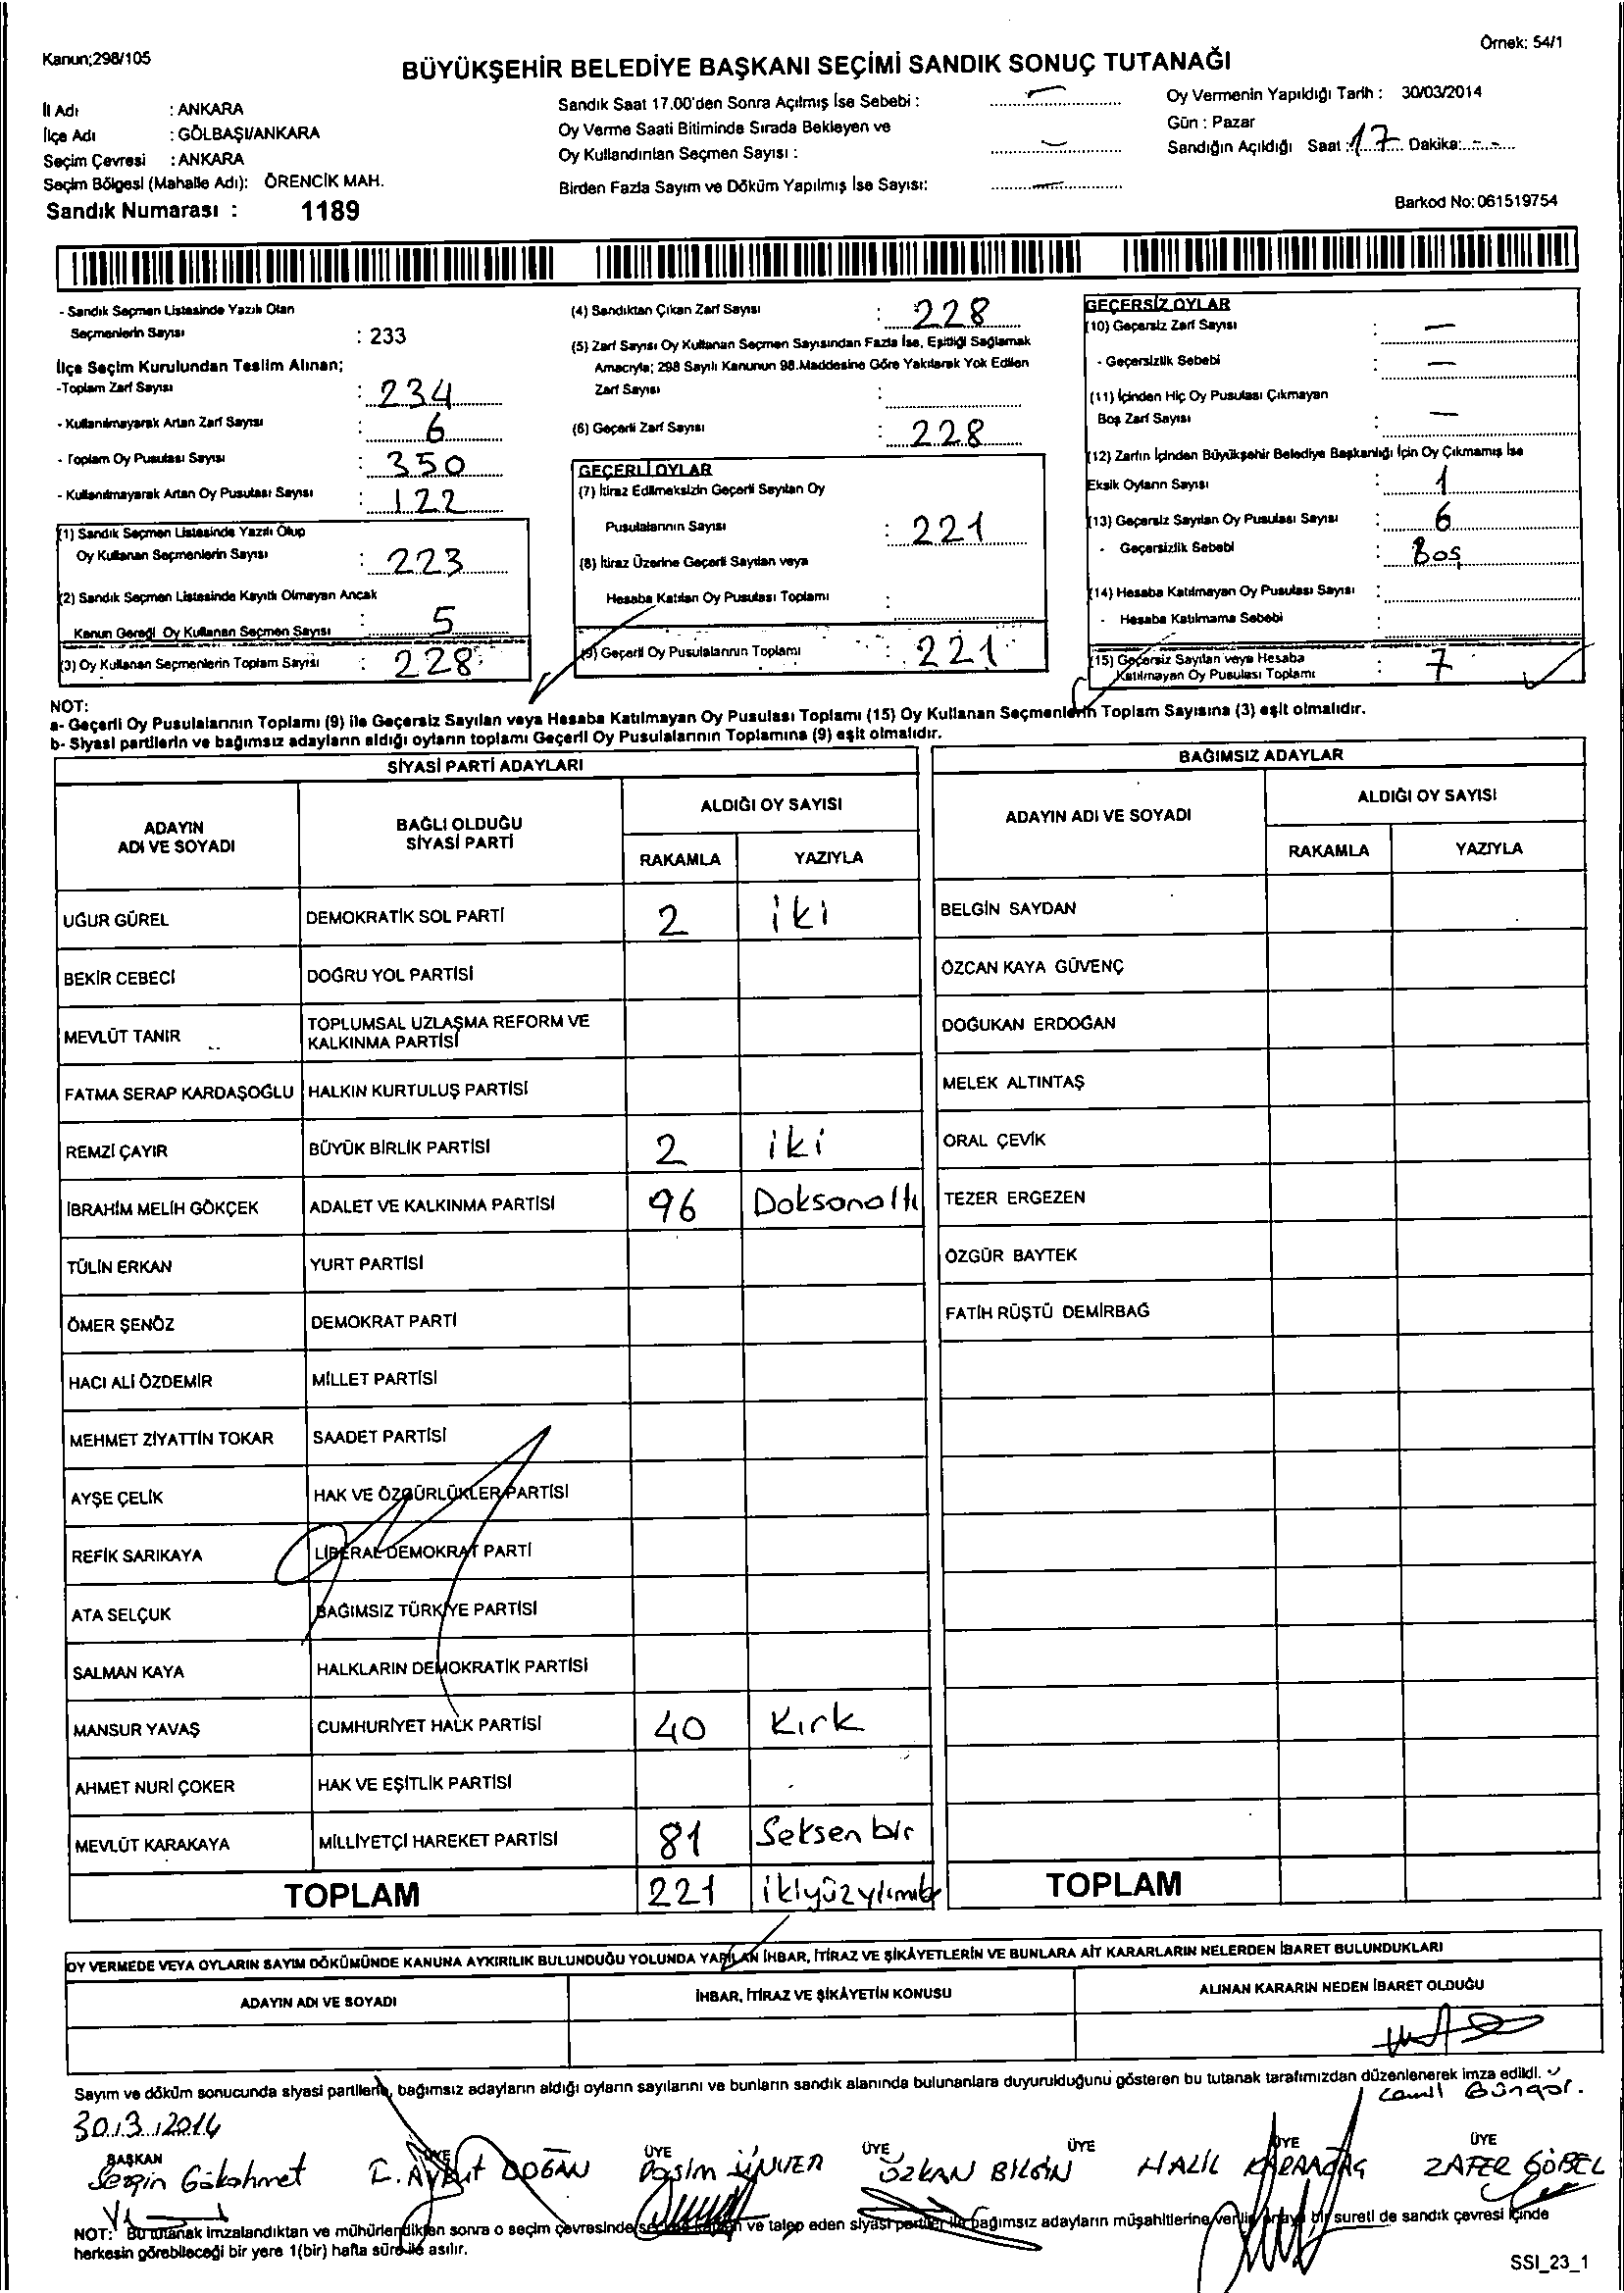 Kanun;298/105
Örnek: 54/1
BÜYÜKŞEHİR BELEDİYE BAŞKANI SEÇİMİ SANDIK SONUÇ TUTANAĞI
İl Adı : ANKARA
İlçe Adı : GÖLBAŞI/ANKARA
Seçim Çevresi : ANKARA
Seçim Bölgesi (Mahalle Adı): ÖRENCİK MAH.
Sandık Numarası : 1189
Sandık Saat 17.00'den Sonra Açılmış İse Sebebi : —
Oy Verme Saati Bitiminde Sırada Bekleyen ve
Oy Kullandırılan Seçmen Sayısı : —
Birden Fazla Sayım ve Döküm Yapılmış İse Sayısı: —
Oy Vermenin Yapıldığı Tarih : 30/03/2014
Gün : Pazar
Sandığın Açıldığı Saat : 17 Dakika: - -
Barkod No: 061519754
- Sandık Seçmen Listesinde Yazılı Olan
Seçmenlerin Sayısı : 233
İlçe Seçim Kurulundan Teslim Alınan;
-Toplam Zarf Sayısı : 234
- Kullanılmayarak Artan Zarf Sayısı : 6
- Toplam Oy Pusulası Sayısı : 350
- Kullanılmayarak Artan Oy Pusulası Sayısı : 122
(1) Sandık Seçmen Listesinde Yazılı Olup
Oy Kullanan Seçmenlerin Sayısı : 223
(2) Sandık Seçmen Listesinde Kayıtlı Olmayan Ancak
Kanun Gereği Oy Kullanan Seçmen Sayısı : 5
(3) Oy Kullanan Seçmenlerin Toplam Sayısı : 228
(4) Sandıktan Çıkan Zarf Sayısı : 228
(5) Zarf Sayısı Oy Kullanan Seçmen Sayısından Fazla İse, Eşitliği Sağlamak
Amacıyla; 298 Sayılı Kanunun 98.Maddesine Göre Yakılarak Yok Edilen
Zarf Sayısı :
(6) Geçerli Zarf Sayısı : 228
GEÇERLİ OYLAR
(7) İtiraz Edilmeksizin Geçerli Sayılan Oy
Pusulalarının Sayısı : 221
(8) İtiraz Üzerine Geçerli Sayılan veya
Hesaba Katılan Oy Pusulası Toplamı :
(9) Geçerli Oy Pusulalarının Toplamı : 221
GEÇERSİZ OYLAR
(10) Geçersiz Zarf Sayısı : —
- Geçersizlik Sebebi : —
(11) İçinden Hiç Oy Pusulası Çıkmayan
Boş Zarf Sayısı : —
(12) Zarfın İçinden Büyükşehir Belediye Başkanlığı İçin Oy Çıkmamış İse
Eksik Oyların Sayısı : 1
(13) Geçersiz Sayılan Oy Pusulası Sayısı : 6
- Geçersizlik Sebebi : Boş
(14) Hesaba Katılmayan Oy Pusulası Sayısı :
- Hesaba Katılmama Sebebi
(15) Geçersiz Sayılan veya Hesaba
Katılmayan Oy Pusulası Toplamı : 7
NOT:
a- Geçerli Oy Pusulalarının Toplamı (9) ile Geçersiz Sayılan veya Hesaba Katılmayan Oy Pusulası Toplamı (15) Oy Kullanan Seçmenlerin Toplam Sayısına (3) eşit olmalıdır.
b- Siyasi partilerin ve bağımsız adayların aldığı oyların toplamı Geçerli Oy Pusulalarının Toplamına (9) eşit olmalıdır.
SİYASİ PARTİ ADAYLARI
ADAYIN ADI VE SOYADI BAĞLI OLDUĞU SİYASİ PARTİ ALDIĞI OY SAYISI
RAKAMLA YAZIYLA
UĞUR GÜREL DEMOKRATİK SOL PARTİ 2 iki
BEKİR CEBECİ DOĞRU YOL PARTİSİ
MEVLÜT TANIR TOPLUMSAL UZLAŞMA REFORM VE KALKINMA PARTİSİ
FATMA SERAP KARDAŞOĞLU HALKIN KURTULUŞ PARTİSİ
REMZİ ÇAYIR BÜYÜK BİRLİK PARTİSİ 2 iki
İBRAHİM MELİH GÖKÇEK ADALET VE KALKINMA PARTİSİ 96 Doksanaltı
TÜLİN ERKAN YURT PARTİSİ
ÖMER ŞENÖZ DEMOKRAT PARTİ
HACI ALİ ÖZDEMİR MİLLET PARTİSİ
MEHMET ZİYATTİN TOKAR SAADET PARTİSİ
AYŞE ÇELİK HAK VE ÖZGÜRLÜKLER PARTİSİ
REFİK SARIKAYA LİBERAL DEMOKRAT PARTİ
ATA SELÇUK BAĞIMSIZ TÜRKİYE PARTİSİ
SALMAN KAYA HALKLARIN DEMOKRATİK PARTİSİ
MANSUR YAVAŞ CUMHURİYET HALK PARTİSİ 40 Kırk
AHMET NURİ ÇOKER HAK VE EŞİTLİK PARTİSİ
MEVLÜT KARAKAYA MİLLİYETÇİ HAREKET PARTİSİ 81 Seksen bir
TOPLAM 221
BAĞIMSIZ ADAYLAR
ADAYIN ADI VE SOYADI ALDIĞI OY SAYISI
RAKAMLA YAZIYLA
BELGİN SAYDAN
ÖZCAN KAYA GÜVENÇ
DOĞUKAN ERDOĞAN
MELEK ALTINTAŞ
ORAL ÇEVİK
TEZER ERGEZEN
ÖZGÜR BAYTEK
FATİH RÜŞTÜ DEMİRBAĞ
TOPLAM
OY VERMEDE VEYA OYLARIN SAYIM DÖKÜMÜNDE KANUNA AYKIRILIK BULUNDUĞU YOLUNDA YAPILAN İHBAR, İTİRAZ VE ŞİKAYETLERİN VE BUNLARA AİT KARARLARIN NELERDEN İBARET BULUNDUKLARI
ADAYIN ADI VE SOYADI İHBAR, İTİRAZ VE ŞİKÂYETİN KONUSU ALINAN KARARIN NEDEN İBARET OLDUĞU
Sayım ve döküm sonucunda siyasi partilerin, bağımsız adayların aldığı oyların sayılarını ve bunların sandık alanında bulunanlara duyurulduğunu gösteren bu tutanak tarafımızdan düzenlenerek imza edildi.
30.3.2014
BAŞKAN ÜYE ÜYE ÜYE ÜYE ÜYE ÜYE
Sezgin Gökahmet DOĞAN ÜNVER ÖZKAN BİLGİN HALİL KARAAĞAÇ ZAFER GÖBEL
NOT: Bu tutanak imzalandıktan ve mühürlendikten sonra o seçim çevresinde ve talep eden siyasi partiler ile bağımsız adayların müşahitlerine bir sureti de sandık çevresi içinde
herkesin görebileceği bir yere 1(bir) hafta süre ile asılır.
SSI_23_1